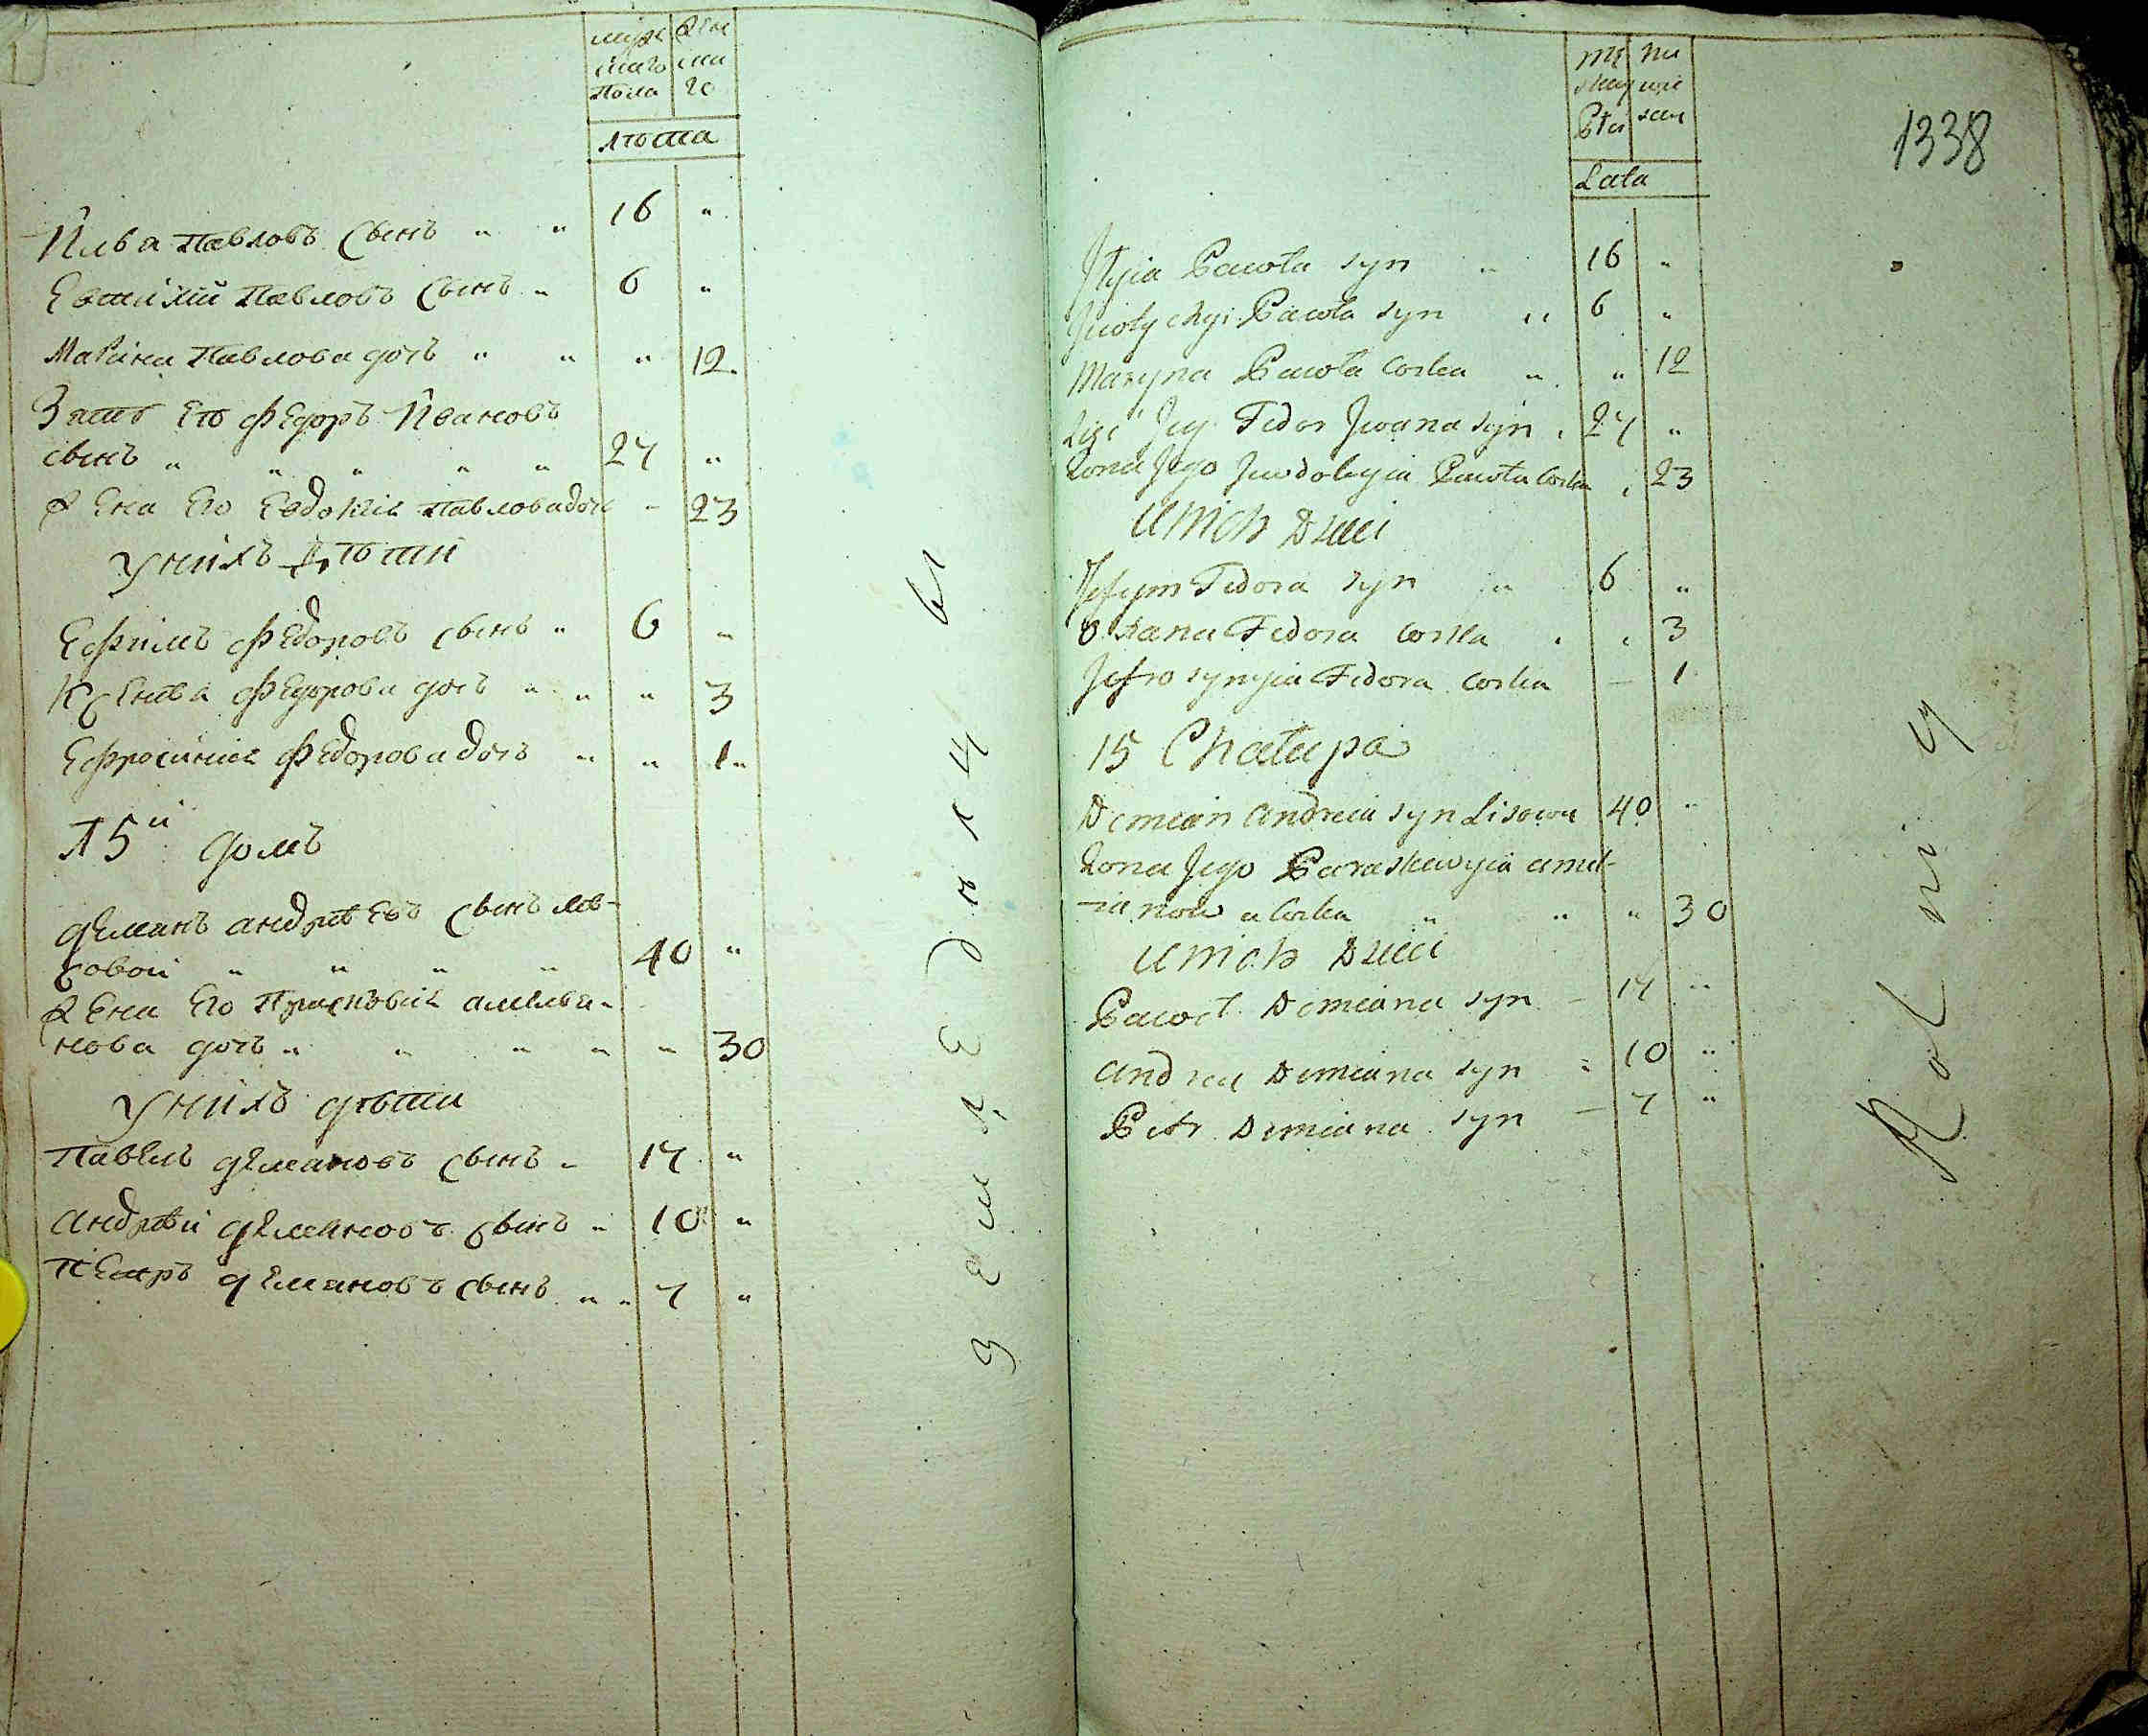 мужс женс
каго ка
пола го
лѣта
Илья Павловъ сынъ " " 16 "
Евтихий Павловъ сынъ " 6 "
Марина Павлова дочь " " " 12
Зять Его Федоръ Ивановъ
сынъ " " " " " 27 "
Жена Его Евдокия Павлова дочь - 23
У нихъ дѣти
Ефимъ Федоровъ сынъ " 6 "
Ксения Федорова дочь " " " 3
Ефросиния Федорова дочь " " 1 "
15й домъ
Демянъ Андрѣевъ сынъ Ли-
совой " " " " 40 "
Жена Его Прасковия Амелья-
нова дочь " " " " " 30
У нихъ дѣти
Павелъ Демяновъ сынъ " 17 "
Андрѣй Демяновъ сынъ " 10 "
Петръ Демяновъ сынъ " " 7 "
Земледелцы
1338
Mę Nie
skiey wie
Płci sciey
Lata
Jlyia Pawła syn " 16 "
Jwtychyi Pawła syn " 6 "
Maryna Pawła Corka " " 12
Zięć Jego Fedor Jwana syn 27 "
Żona Jego Jewdokyia Pawła Corka 23
U nich Dzieci
Jefym Fedora syn " 6 "
Oxana Fedora Corka " " 3
Jefrosynyia Fedora Corka - 1
15 Chałupa
Demian Andreia syn Lisowy 40 "
Żona Jego Paraskewyia Amel-
ianowa Corka " " " 30
U nich Dzieci
Paweł Demiana syn - 17 "
Andrey Demiana syn " 10 "
Petr Demiana syn - 7 "
Rolnicy